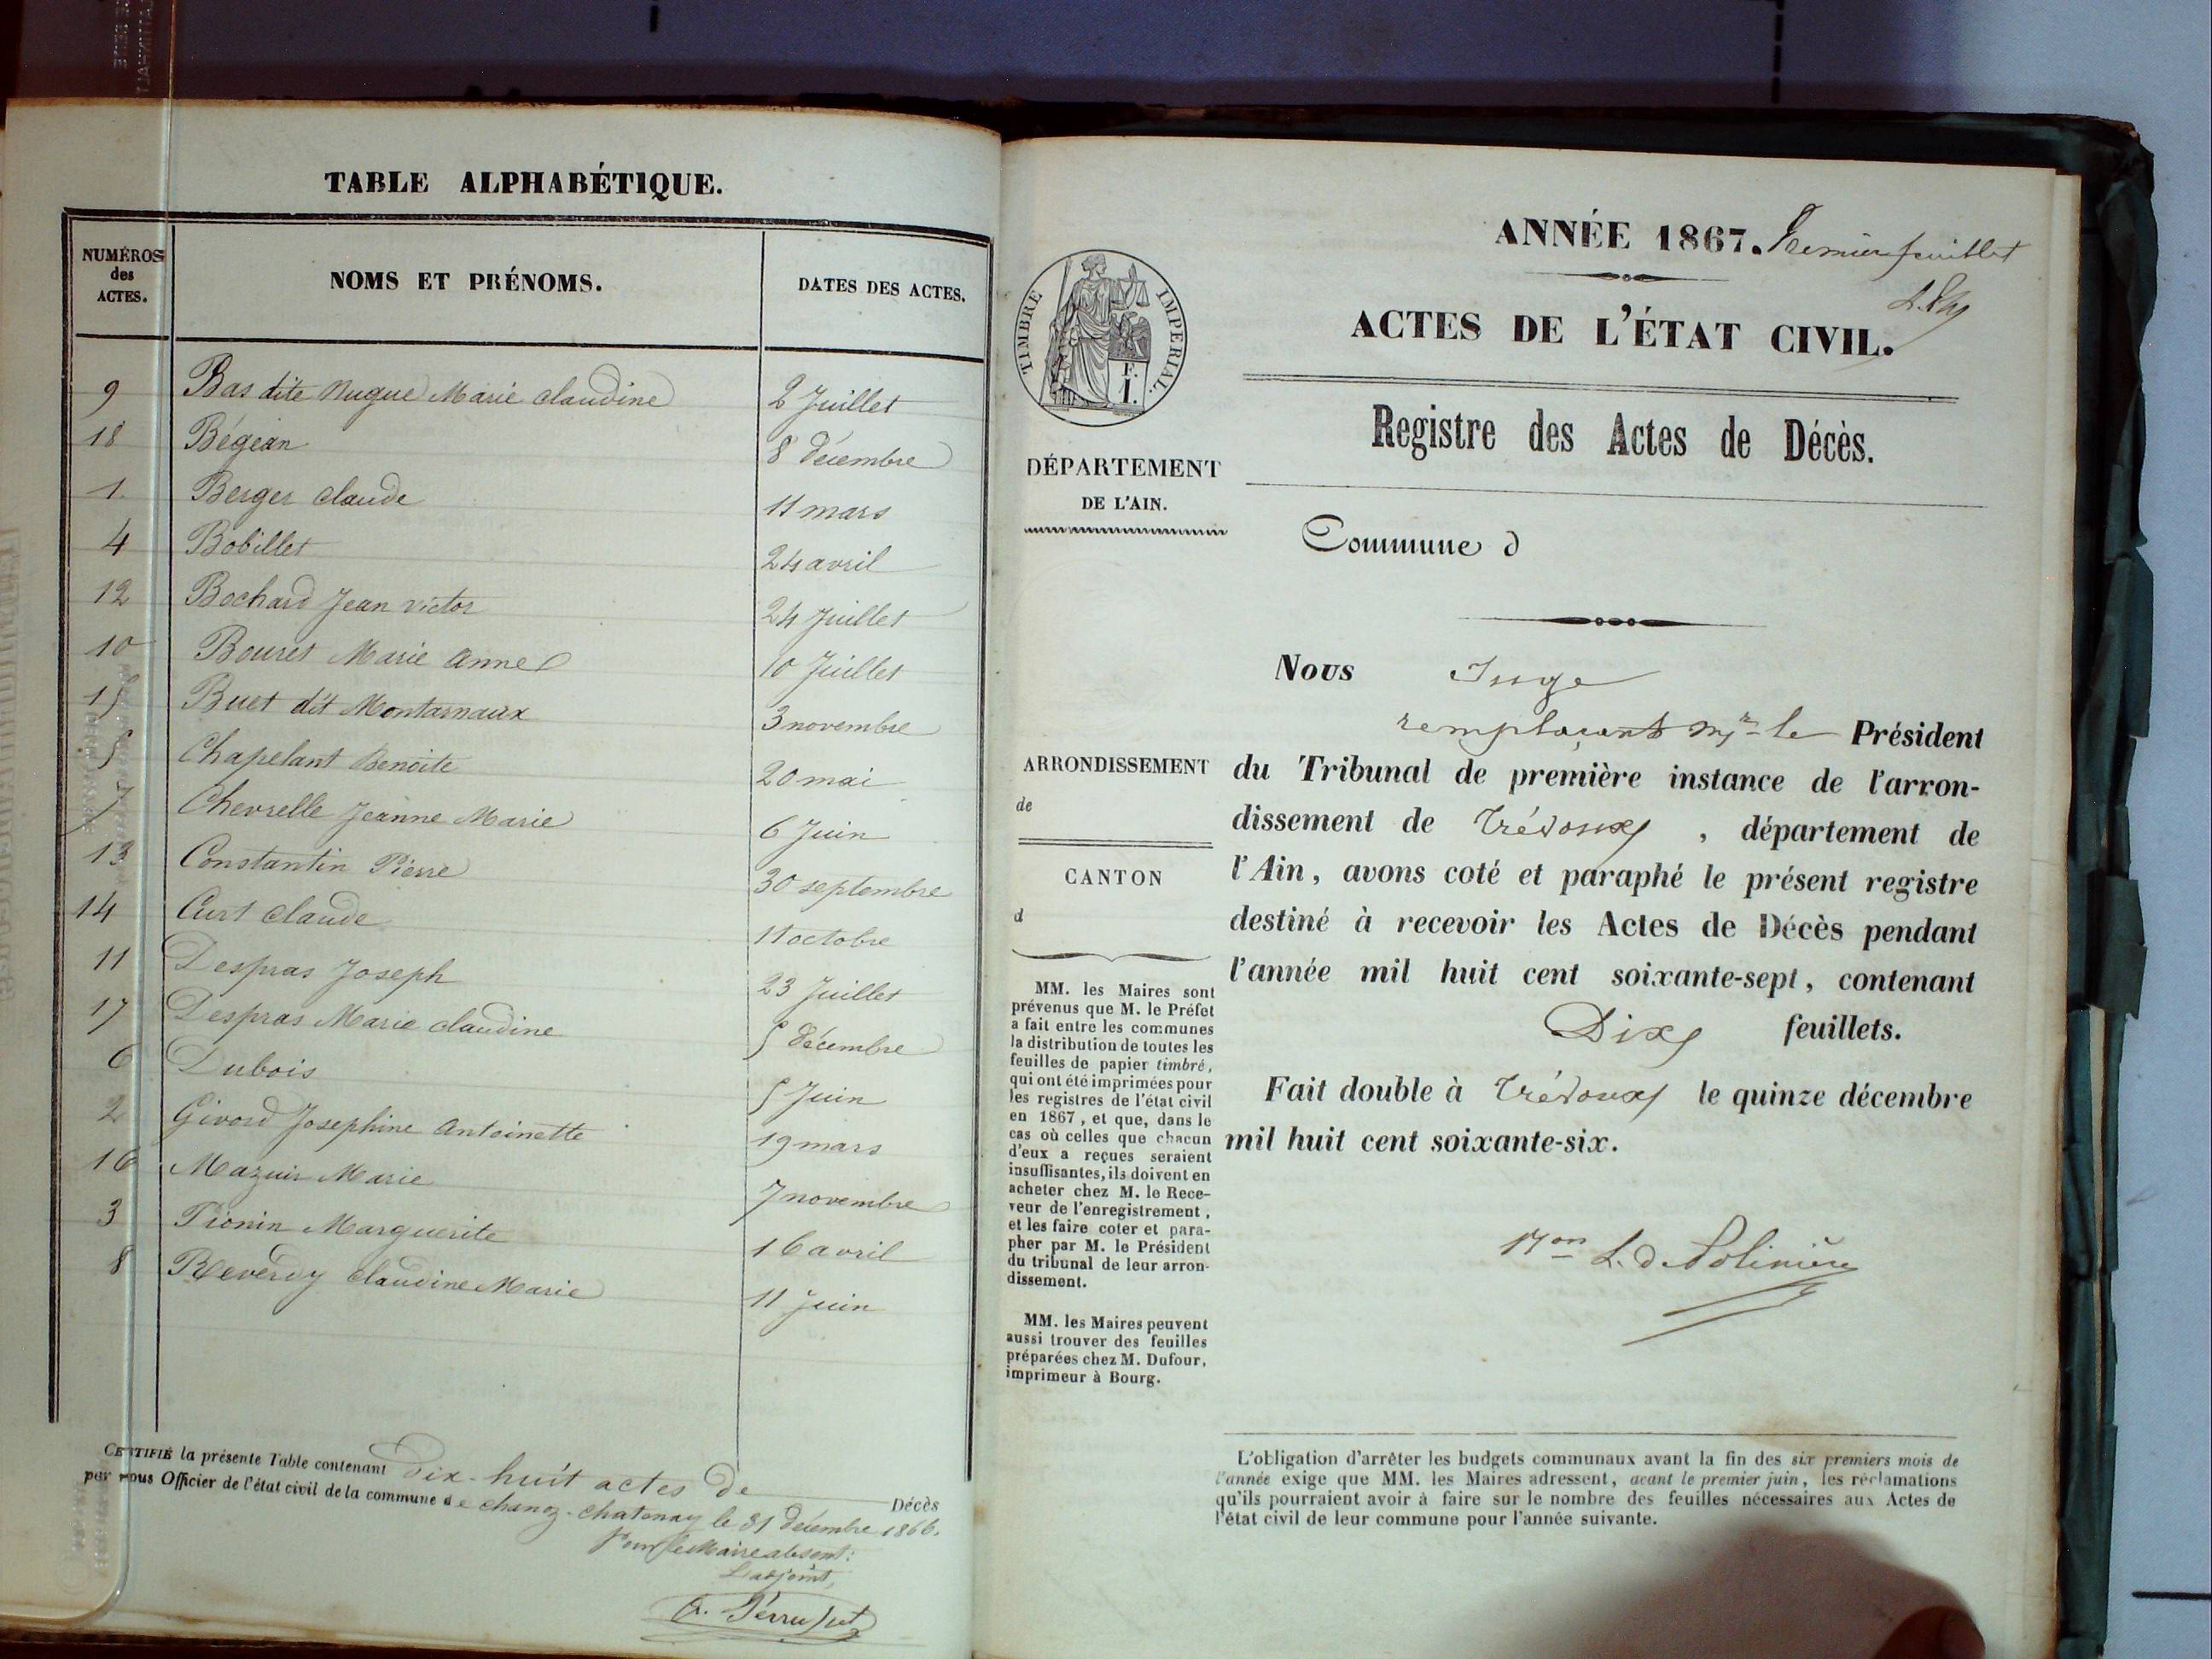 TABLE ALPHABÉTIQUE.
NUMÉROS des ACTES. NOMS ET PRÉNOMS. DATES DES ACTES.
9 Bas dite Nugue Marie Claudine 2 Juillet
18 Bégean 8 décembre
1 Berger Claude 11 mars
4 Bobillet 24 avril
12 Bochard Jean Victor 24 Juillet
10 Bouret Marie Anne 10 Juillet
15 Buet dit Montarnaux 3 novembre
5 Chapelant Benoite 20 mai
7 Chevrelle Jeanne Marie 6 Juin
13 Constantin Pierre 30 septembre
14 Curt Claude 11 octobre
11 Despras Joseph 23 Juillet
17 Despras Marie Claudine 5 décembre
6 Dubois 5 Juin
2 Givord Josephine Antoinette 19 mars
16 Mazuir Marie 7 novembre
3 Pionin Marguerite 16 avril
8 Reverdy Claudine Marie 11 Juin
CERTIFIÉ la présente Table contenant dix-huit actes de Décès
par nous Officier de l'état civil de la commune de Chanoz-Chatenay le 31 décembre 1866.
Pour le Maire absent:
L'adjoint,
ANNÉE 1867. Premier feuillet
ACTES DE L'ÉTAT CIVIL.
TIMBRE IMPÉRIAL.
F.
1.
Registre des Actes de Décès.
DÉPARTEMENT
DE L'AIN.
Commune d
Nous Juge
remplaçant Mr le Président
du Tribunal de première instance de l'arron-
dissement de Trévoux, département de
l'Ain, avons coté et paraphé le présent registre
destiné à recevoir les Actes de Décès pendant
l'année mil huit cent soixante-sept, contenant
Dix feuillets.
Fait double à Trévoux le quinze décembre
mil huit cent soixante-six.
ARRONDISSEMENT
de
CANTON
d
MM. les Maires sont
prévenus que M. le Préfet
a fait entre les communes
la distribution de toutes les
feuilles de papier timbré,
qui ont été imprimées pour
les registres de l'état civil
en 1867, et que, dans le
cas où celles que chacun
d'eux a reçues seraient
insuffisantes, ils doivent en
acheter chez M. le Rece-
veur de l'enregistrement,
et les faire coter et para-
pher par M. le Président
du tribunal de leur arron-
dissement.
MM. les Maires peuvent
aussi trouver des feuilles
préparées chez M. Dufour,
imprimeur à Bourg.
L'obligation d'arrêter les budgets communaux avant la fin des six premiers mois de
l'année exige que MM. les Maires adressent, avant le premier juin, les réclamations
qu'ils pourraient avoir à faire sur le nombre des feuilles nécessaires aux Actes de
l'état civil de leur commune pour l'année suivante.